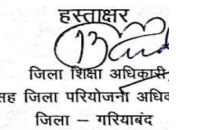 हस्ताक्षर
जिला शिक्षा अधिकारी,
सह जिला परियोजना
जिला – गरियाबंद